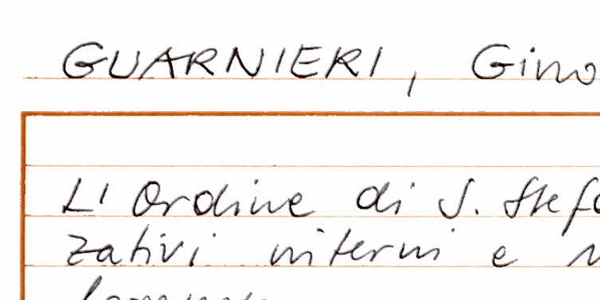 GUARNIERI, Gino
L'Ordine di S. Stefa
zativi interni e